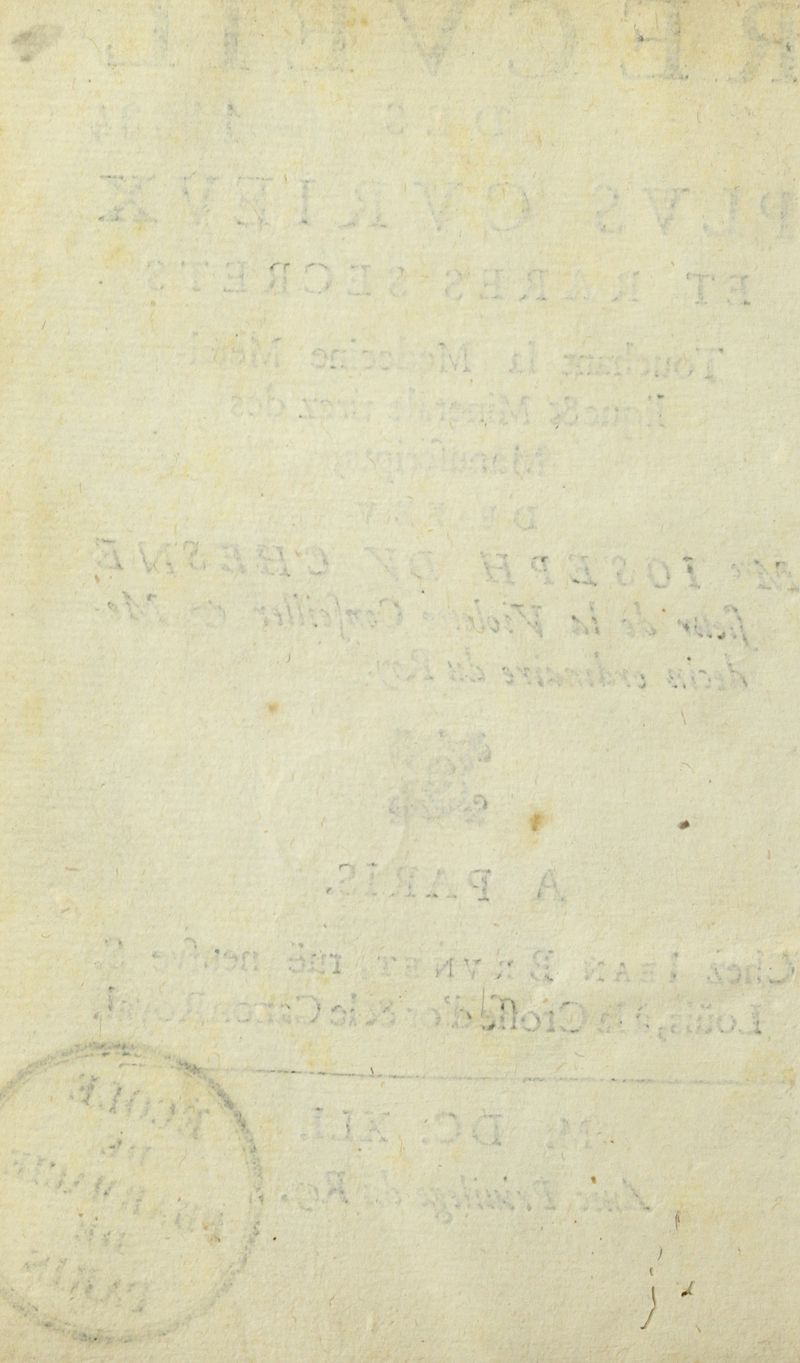 RECVEIL
DES
PLVS CVRIEVX
ET RARES SECRETS
Touchant la Medecine Metal-
lique & Minerale tirez des
Manuscripts
DE FEV
Mre IOSEPH DV CHESNE
sieur de la Violette Conseiller & Me-
decin ordinaire du Roy.
A PARIS,
Chez IEAN BRVNET, ruë neufve S.
Loüis, à la Crosse d'or & le Canon Royal.
M. DC. XLI.
Auec Priuilege du Roy.
ECOLE
DE
PHARMACIE
DE
PARIS